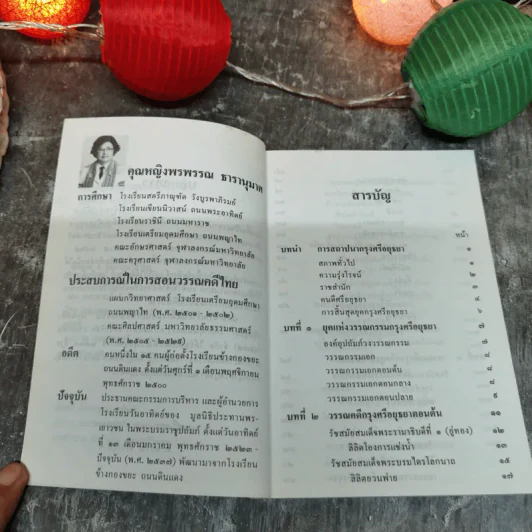 คุณหญิงพรพรรณ ธารานุมาศ
การศึกษา โรงเรียนสตรีภาณุทัต วังบูรพาภิรมย์
โรงเรียนเขียนนิวาสน์ ถนนพระอาทิตย์
โรงเรียนราชินี ถนนมหาราช
โรงเรียนเตรียมอุดมศึกษา ถนนพญาไท
คณะอักษรศาสตร์ จุฬาลงกรณ์มหาวิทยาลัย
คณะครุศาสตร์ จุฬาลงกรณ์มหาวิทยาลัย
ประสบการณ์ในการสอนวรรณคดีไทย
แผนกวิทยาศาสตร์ โรงเรียนเตรียมอุดมศึกษา
ถนนพญาไท (พ.ศ. ๒๕๐๑ - ๒๕๐๒)
คณะศิลปศาสตร์ มหาวิทยาลัยธรรมศาสตร์
(พ.ศ. ๒๕๐๕ - ๒๕๒๕)
อดีต คนหนึ่งใน ๑๕ คนผู้ก่อตั้งโรงเรียนข้างกองขยะ
ถนนดินแดง ตั้งแต่วันศุกร์ที่ ๑ เดือนพฤศจิกายน
พุทธศักราช ๒๕๐๐
ปัจจุบัน ประธานคณะกรรมการบริหาร และผู้อำนวยการ
โรงเรียนวันอาทิตย์ของ มูลนิธิประทานพร-
เยาวชน ในพระบรมราชูปถัมภ์ ตั้งแต่วันอาทิตย์
ที่ ๑๓ เดือนมกราคม พุทธศักราช ๒๕๒๓ -
ปัจจุบัน (พ.ศ. ๒๕๓๗) พัฒนามาจากโรงเรียน
ข้างกองขยะ ถนนดินแดง
สารบัญ
หน้า
บทนำ การสถาปนากรุงศรีอยุธยา ๑
สภาพทั่วไป ๑
ความรุ่งโรจน์ ๒
ราชสำนัก ๓
คนดีศรีอยุธยา ๔
การสิ้นสุดยุคกรุงศรีอยุธยา ๖
บทที่ ๑ ยุคแห่งวรรณกรรมกรุงศรีอยุธยา ๗
องค์อุปถัมภ์วงวรรณกรรม ๗
วรรณกรรมเอก ๘
วรรณกรรมเอกตอนต้น ๘
วรรณกรรมเอกตอนกลาง ๘
วรรณกรรมเอกตอนปลาย ๙
บทที่ ๒ วรรณคดีกรุงศรีอยุธยาตอนต้น ๑๑
รัชสมัยสมเด็จพระรามาธิบดีที่ ๑ (อู่ทอง) ๑๒
ลิลิตโองการแช่งน้ำ ๑๓
รัชสมัยสมเด็จพระบรมไตรโลกนาถ ๑๕
ลิลิตยวนพ่าย ๑๗